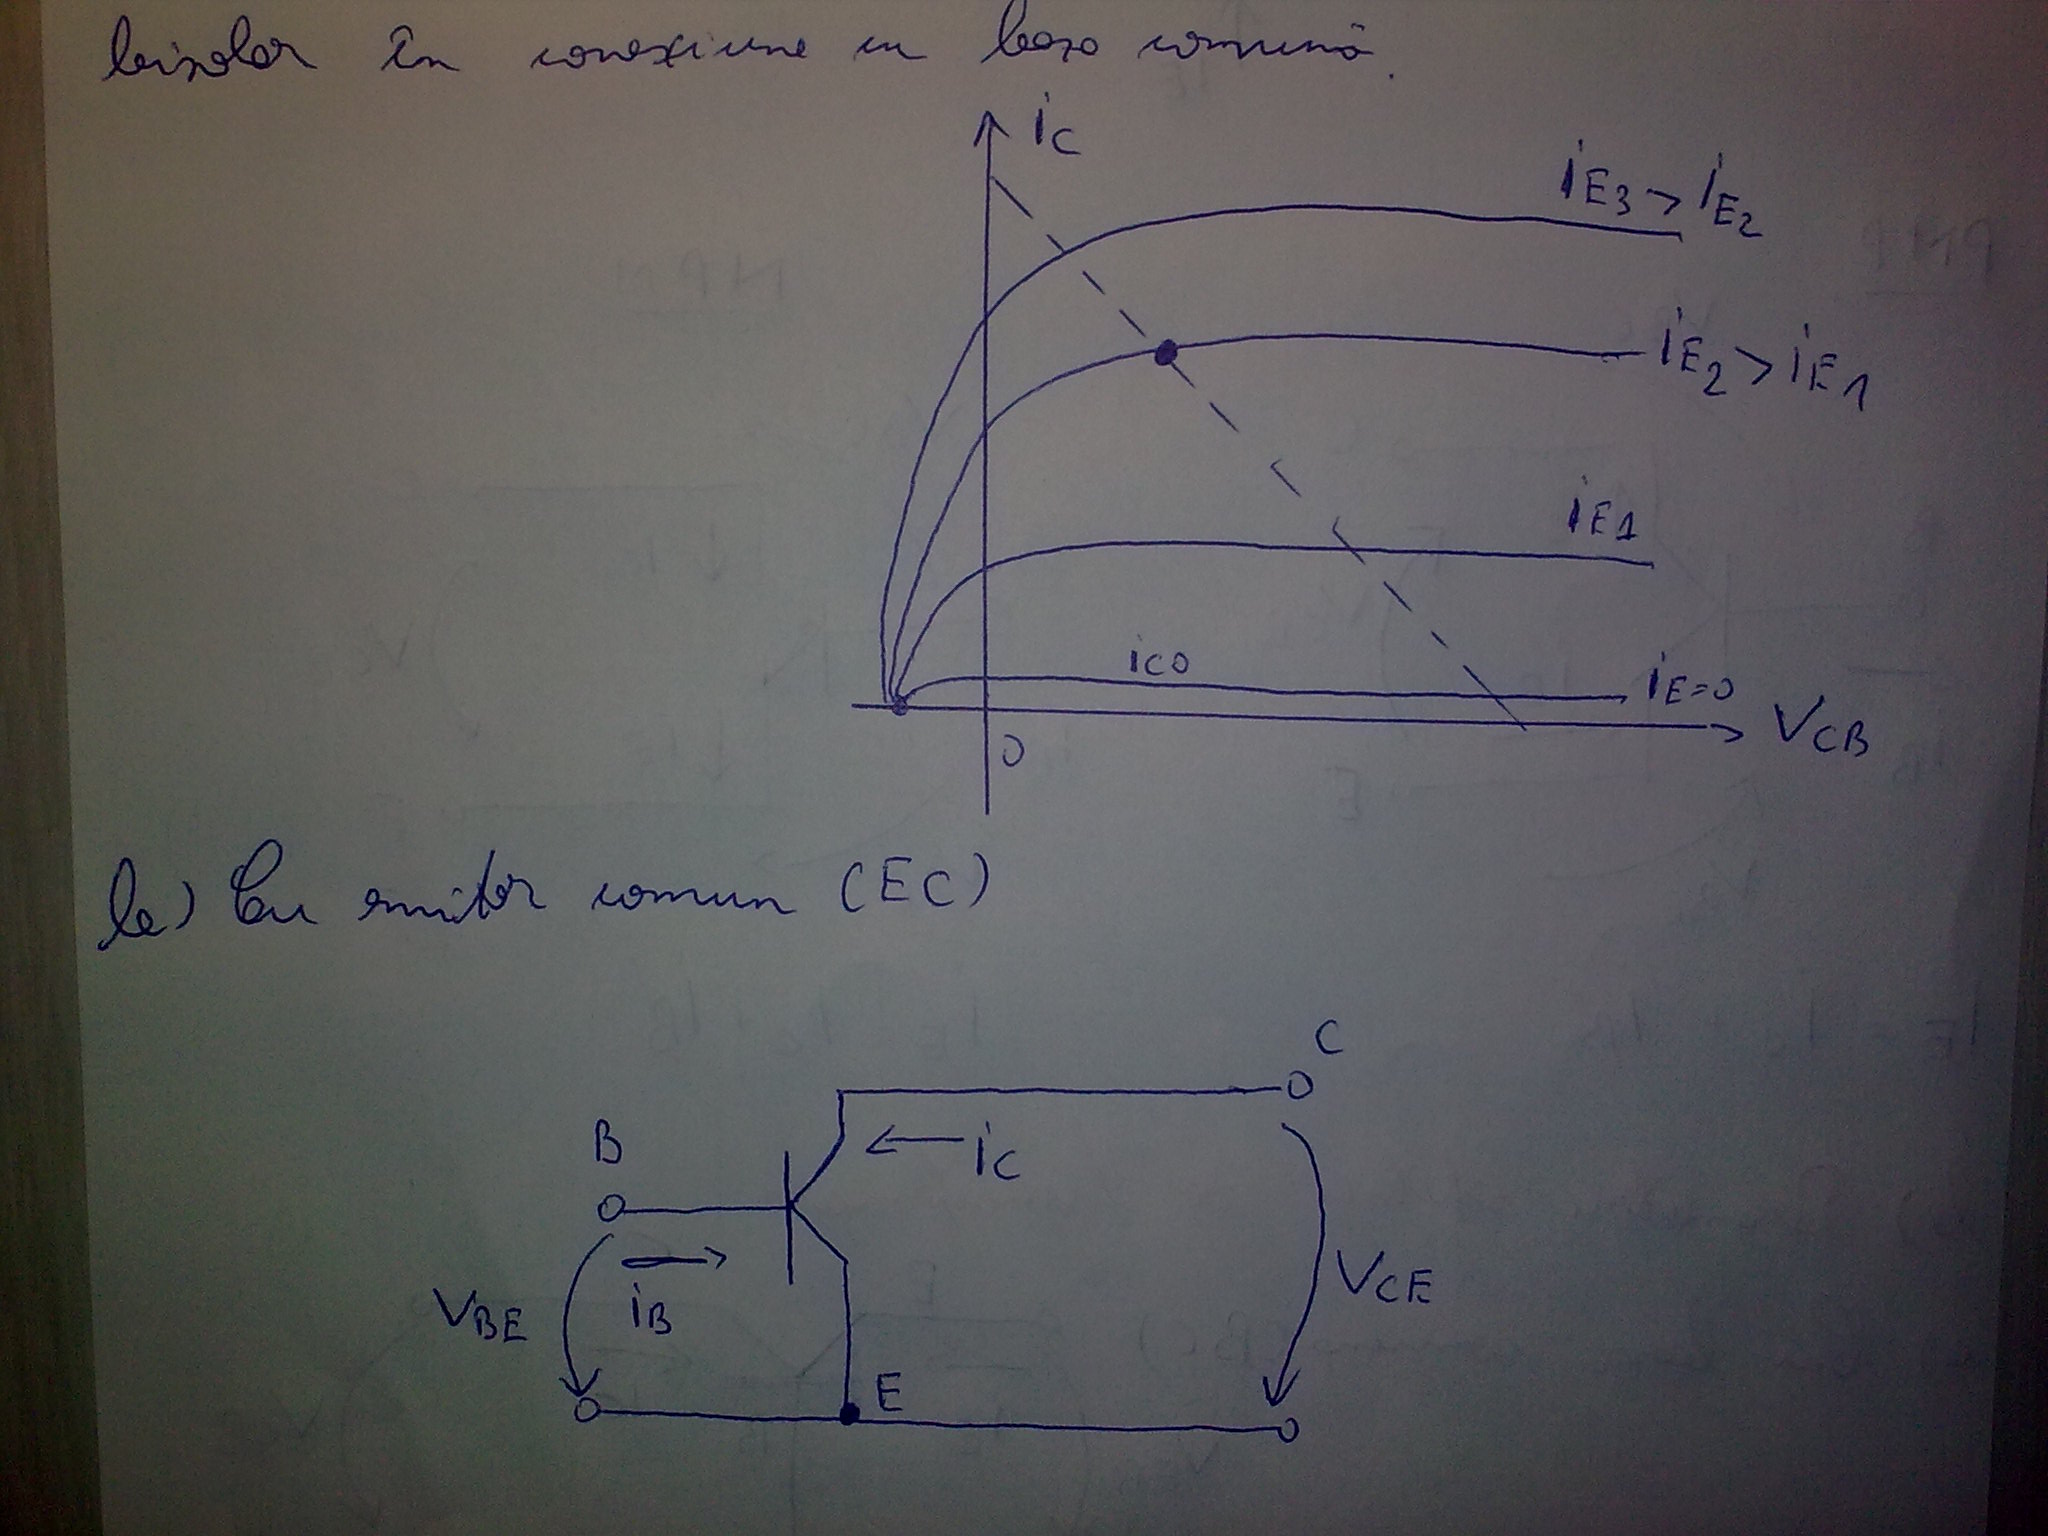 bipolar în conexiune cu baza comună.
iC
iE3 > iE2
iE2 > iE1
iE1
iC0
iE=0
VCB
0
b) Cu emitor comun (EC)
C
B
iC
iB
VBE
VCE
E